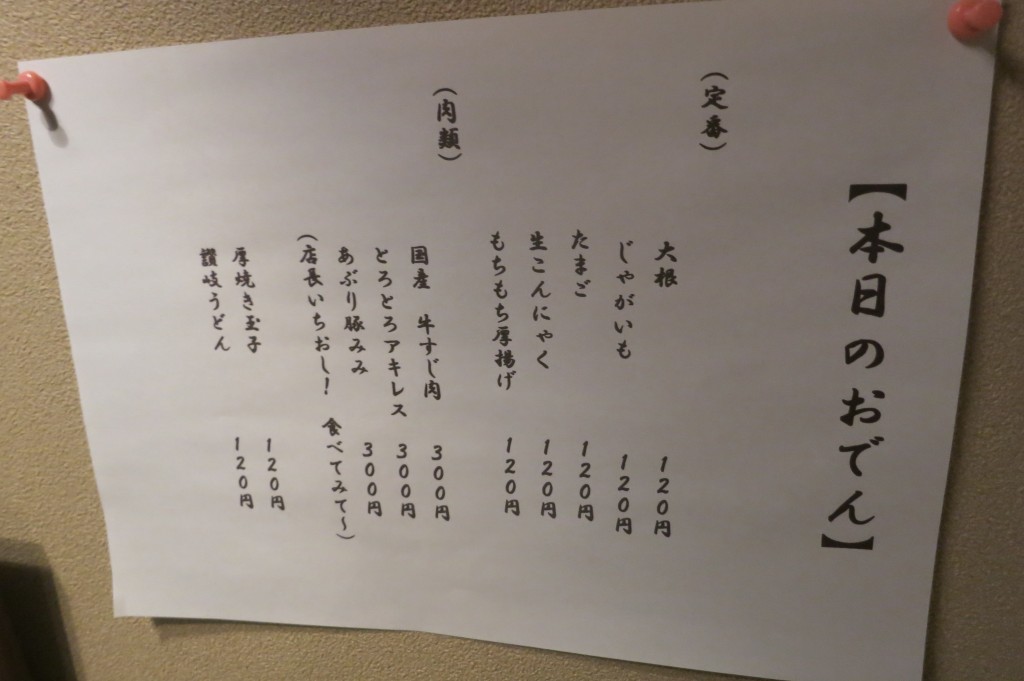 【本日のおでん】
(定番)
大根 120円
じゃがいも 120円
たまご 120円
生こんにゃく 120円
もちもち厚揚げ 120円
(肉類)
国産 牛すじ肉 300円
とろとろアキレス 300円
あぶり豚みみ 300円
(店長いちおし! 食べてみて~)
厚焼き玉子 120円
讃岐うどん 120円